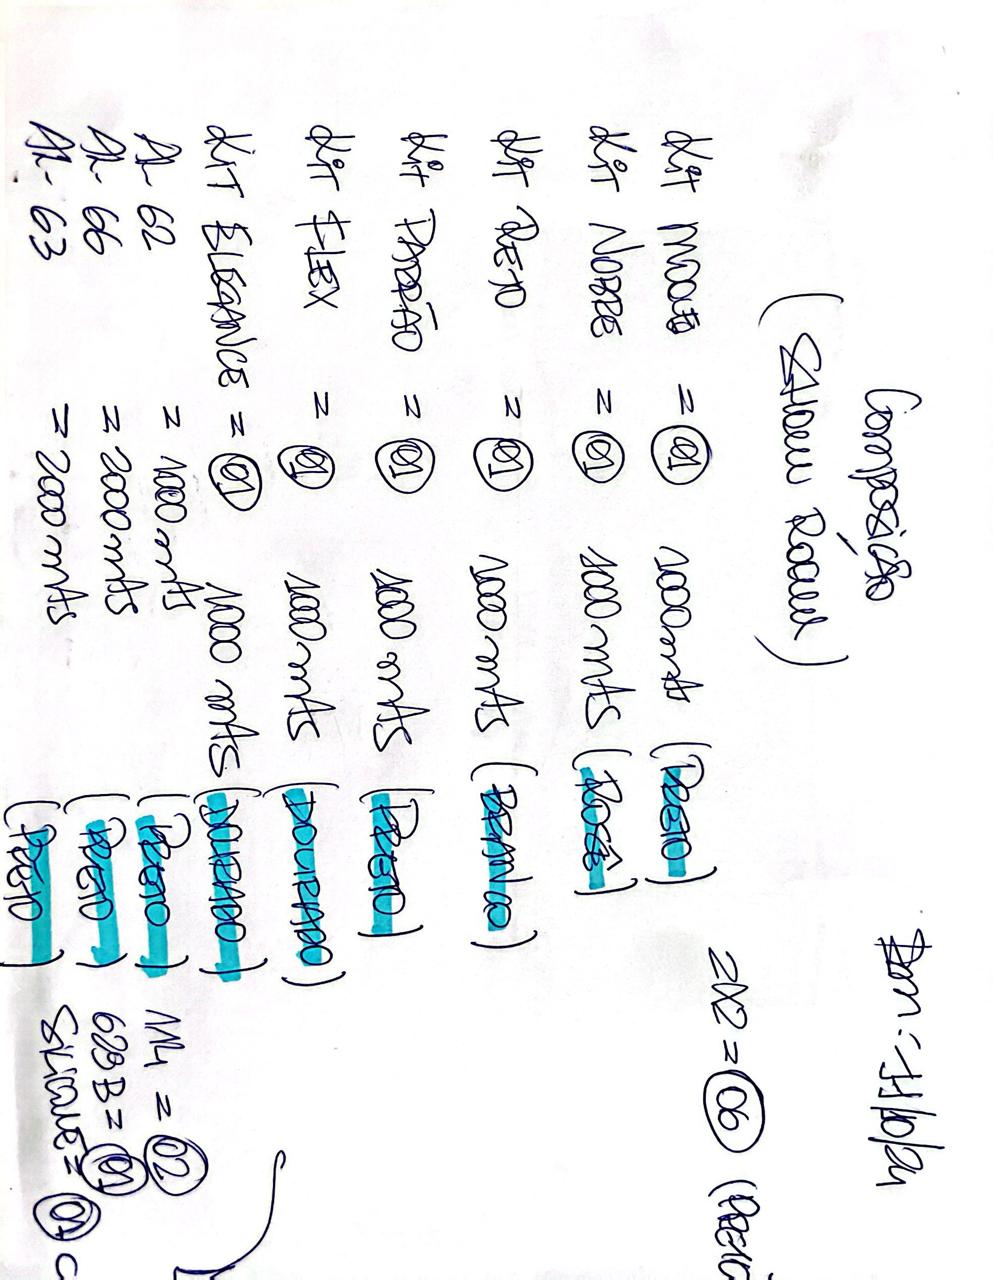 Composição
(Show Room)
Kit Moove = 01 1000 mts (Preto)
Kit Nobre = 01 1000 mts (Rosê)
Kit Reto = 01 1000 mts (Branco)
Kit Padrão = 01 1000 mts (Preto)
Kit Flex = 01 1000 mts (Dourado)
Kit Elegance = 01 1000 mts (Dourado)
AL- 62 = 1000 mts (Preto)
AL- 66 = 2000 mts (Preto)
AL- 63 = 2000 mts (Preto)
2X2 = 06
114 = 02
623B = 01
Silicone = 01